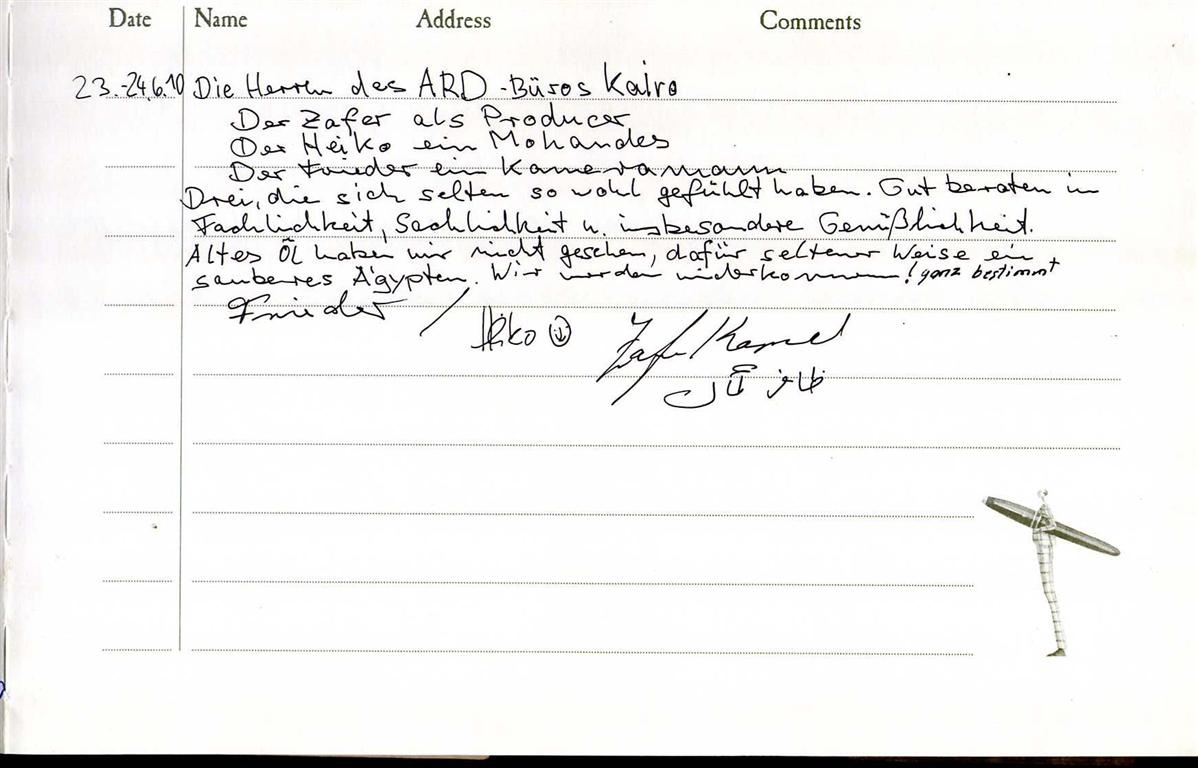 Date Name Address Comments
23.-24.6.10 Die Herren des ARD-Büros Kairo
Der Zafer als Producer
Der Heiko ein Mohandes
Der Frieder ein Kameramann
Drei, die sich selten so wohl gefühlt haben. Gut beraten in
Fachlichkeit, Sachlichkeit u. insbesondere Genüßlichkeit.
Altes Öl haben wir nicht gesehen, dafür seltener Weise ein
sauberes Ägypten. Wir werden wiederkommen! ganz bestimmt
Frieder / Heiko Zafer Kamel